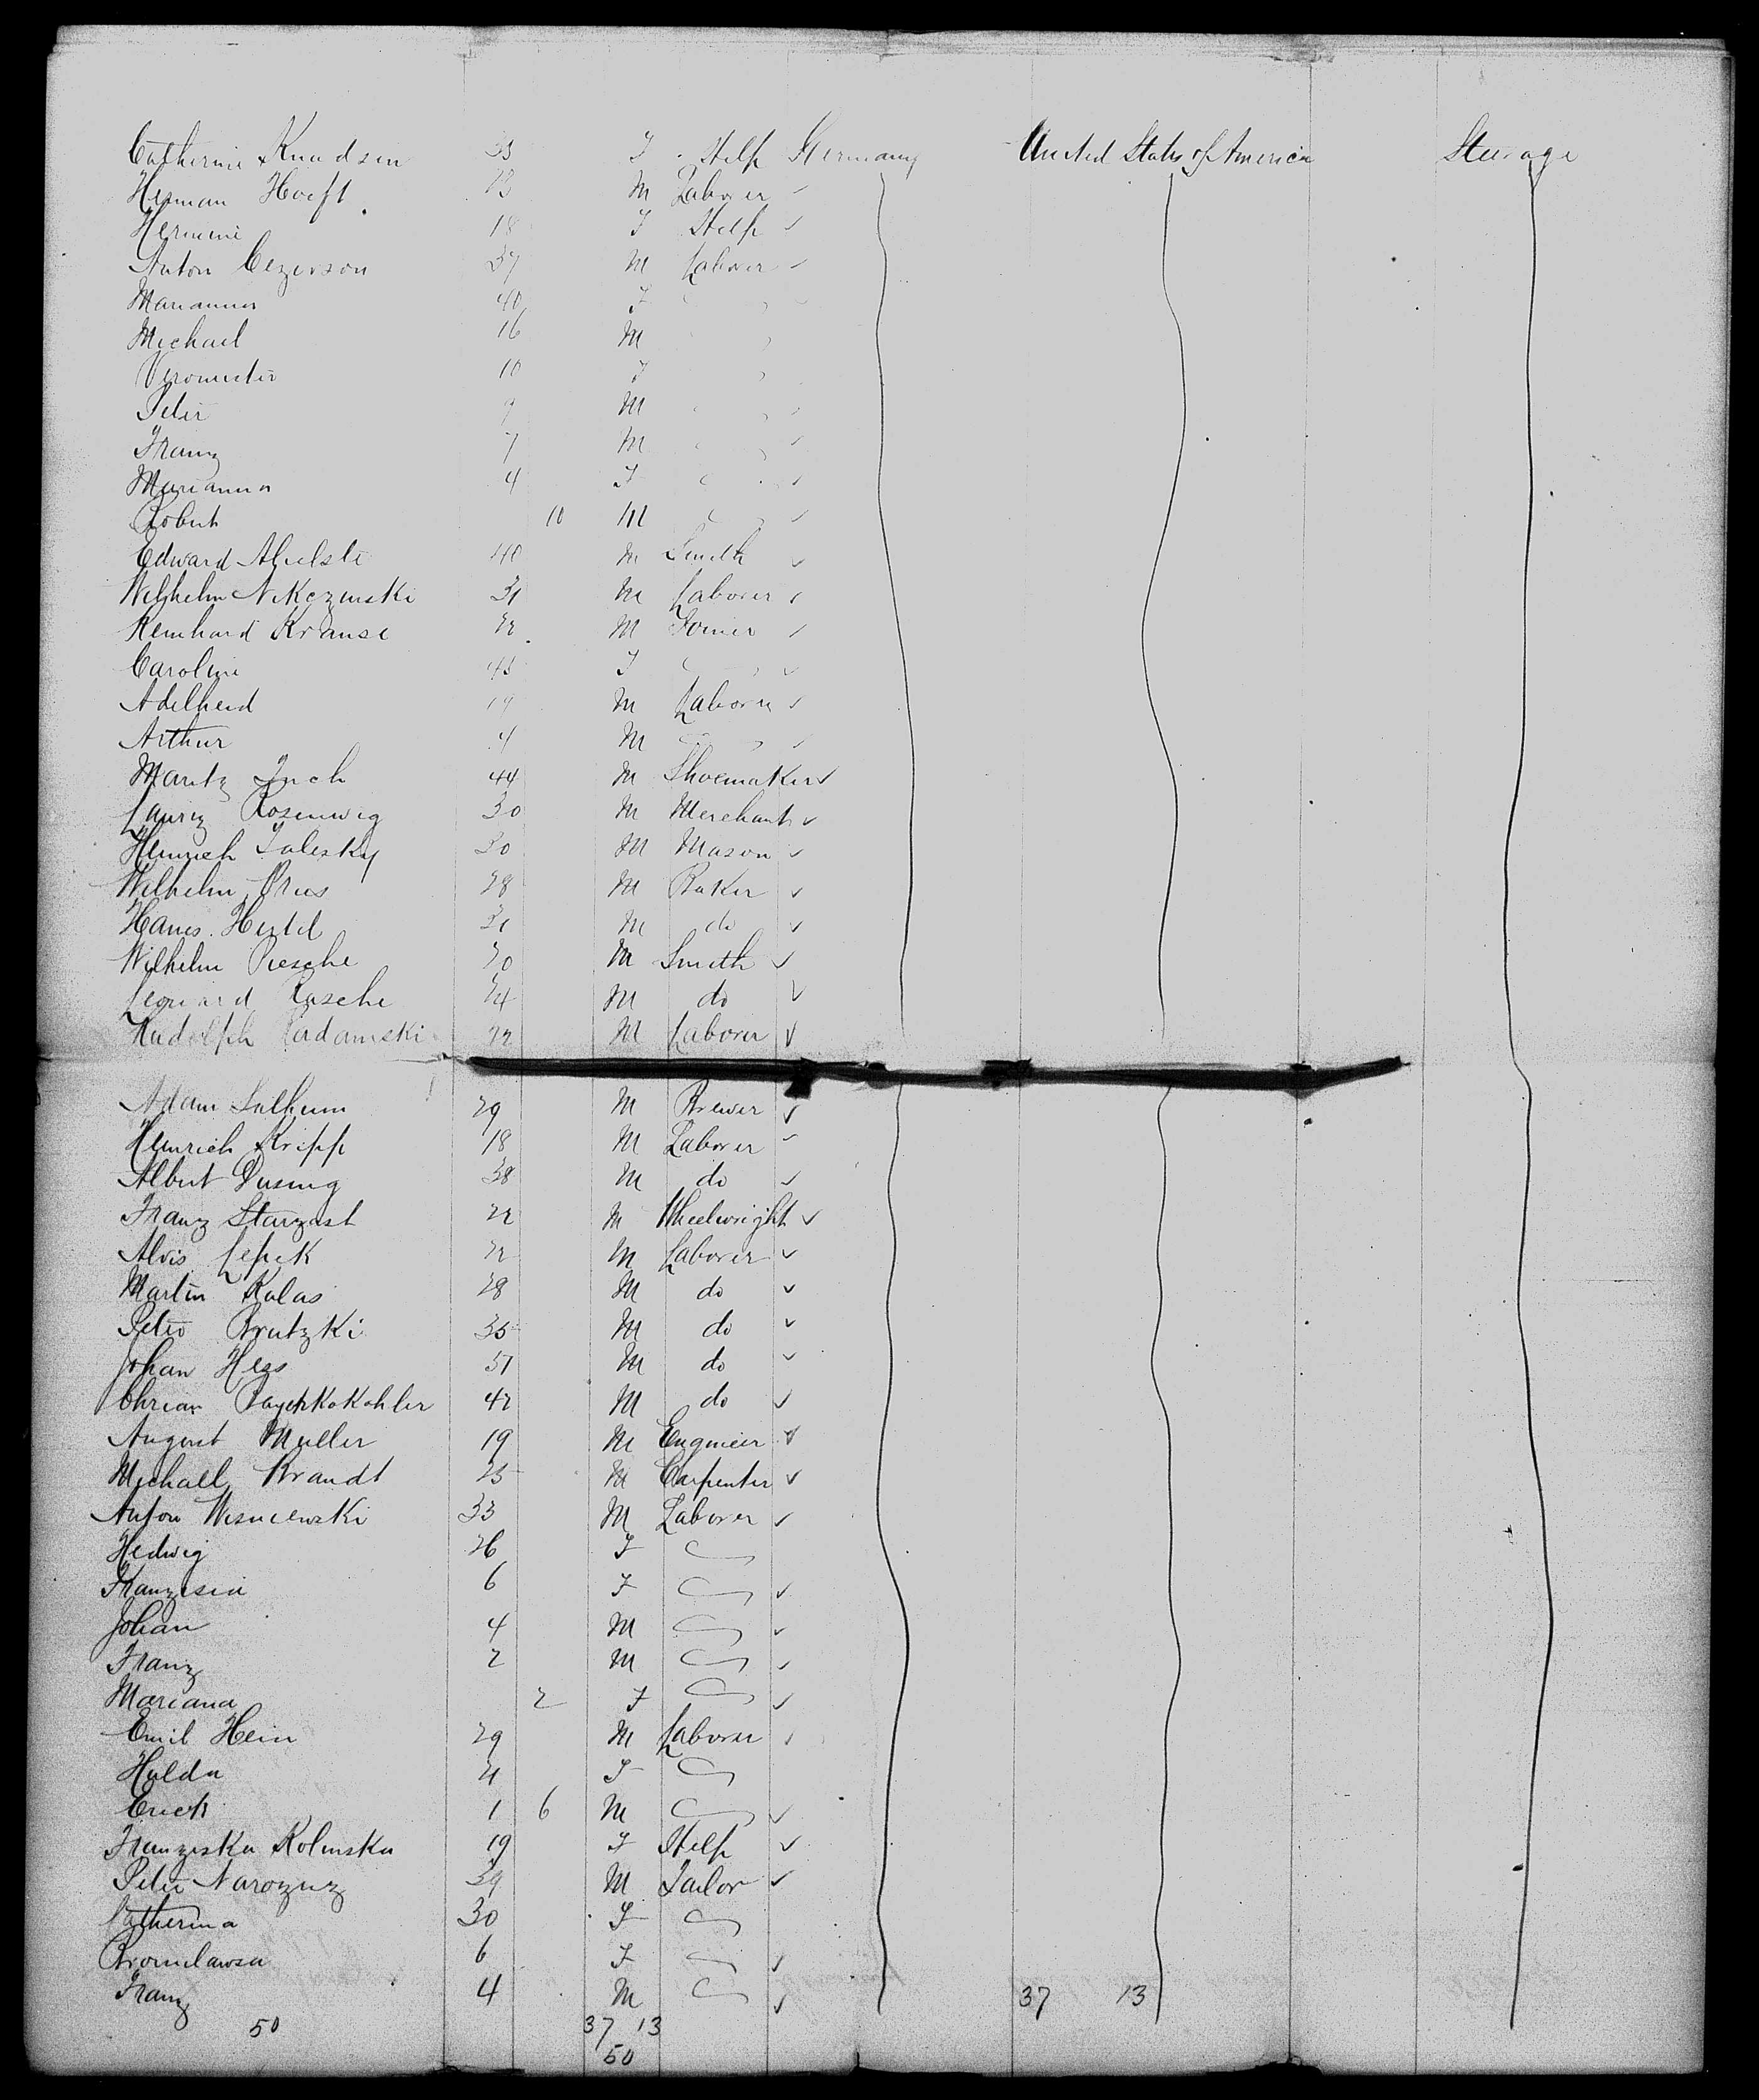 Catherine Knudsen 33 F Help Germany United States of America Steerage
Herman Hoeft M Laborer
Hermine 18 F Help
Anton Cezerson 37 M Laborer
Marianna 40 F
Michael 16 M
10 F
Peter 9 M
Franz 7 M
Marianna 4 F
Robert 10 M
Edward 40 M Smith
Wilhelm Nikczinski 31 M Laborer
Reinhard Krause M Joiner
Caroline 45 F
Adelheid 19 M Laborer
Arthur 4 M
Moritz 44 M Shoemaker
Rosenwig 30 M Merchant
Heinrich Salesky 30 M Mason
Wilhelm 28 M Baker
Hans Hertel M do
Wilhelm Piesche 20 M Smith
Leonard Rasche 24 M do
Rudolph Radamski 22 M Laborer
Adam 29 M Brewer
Heinrich Kripp 18 M Laborer
Albert Dusing 38 M do
Franz 22 M Wheelwright
Alois Lepek 22 M Laborer
Martin Kalas 28 M do
Peter Brutzki 35 M do
Johan Hess 51 M do
42 M do
August Muller 19 M Engineer
Michall Brandt 25 M Carpenter
Anton Wisniewski 33 M Laborer
Hedwig 26 F
Franzisca 6 F
Johan 4 M
Franz 2 M
Mariana 2 F
Emil Hein 29 M Laborer
Hulda 21 F
Erich 1 6 M
Franziska Kolinska 19 F Help
Peter Narozniz 39 M Tailor
Catherina 30 F
Bronislawsa 6 F
Franz 4 M 37 13
50 37 13
50